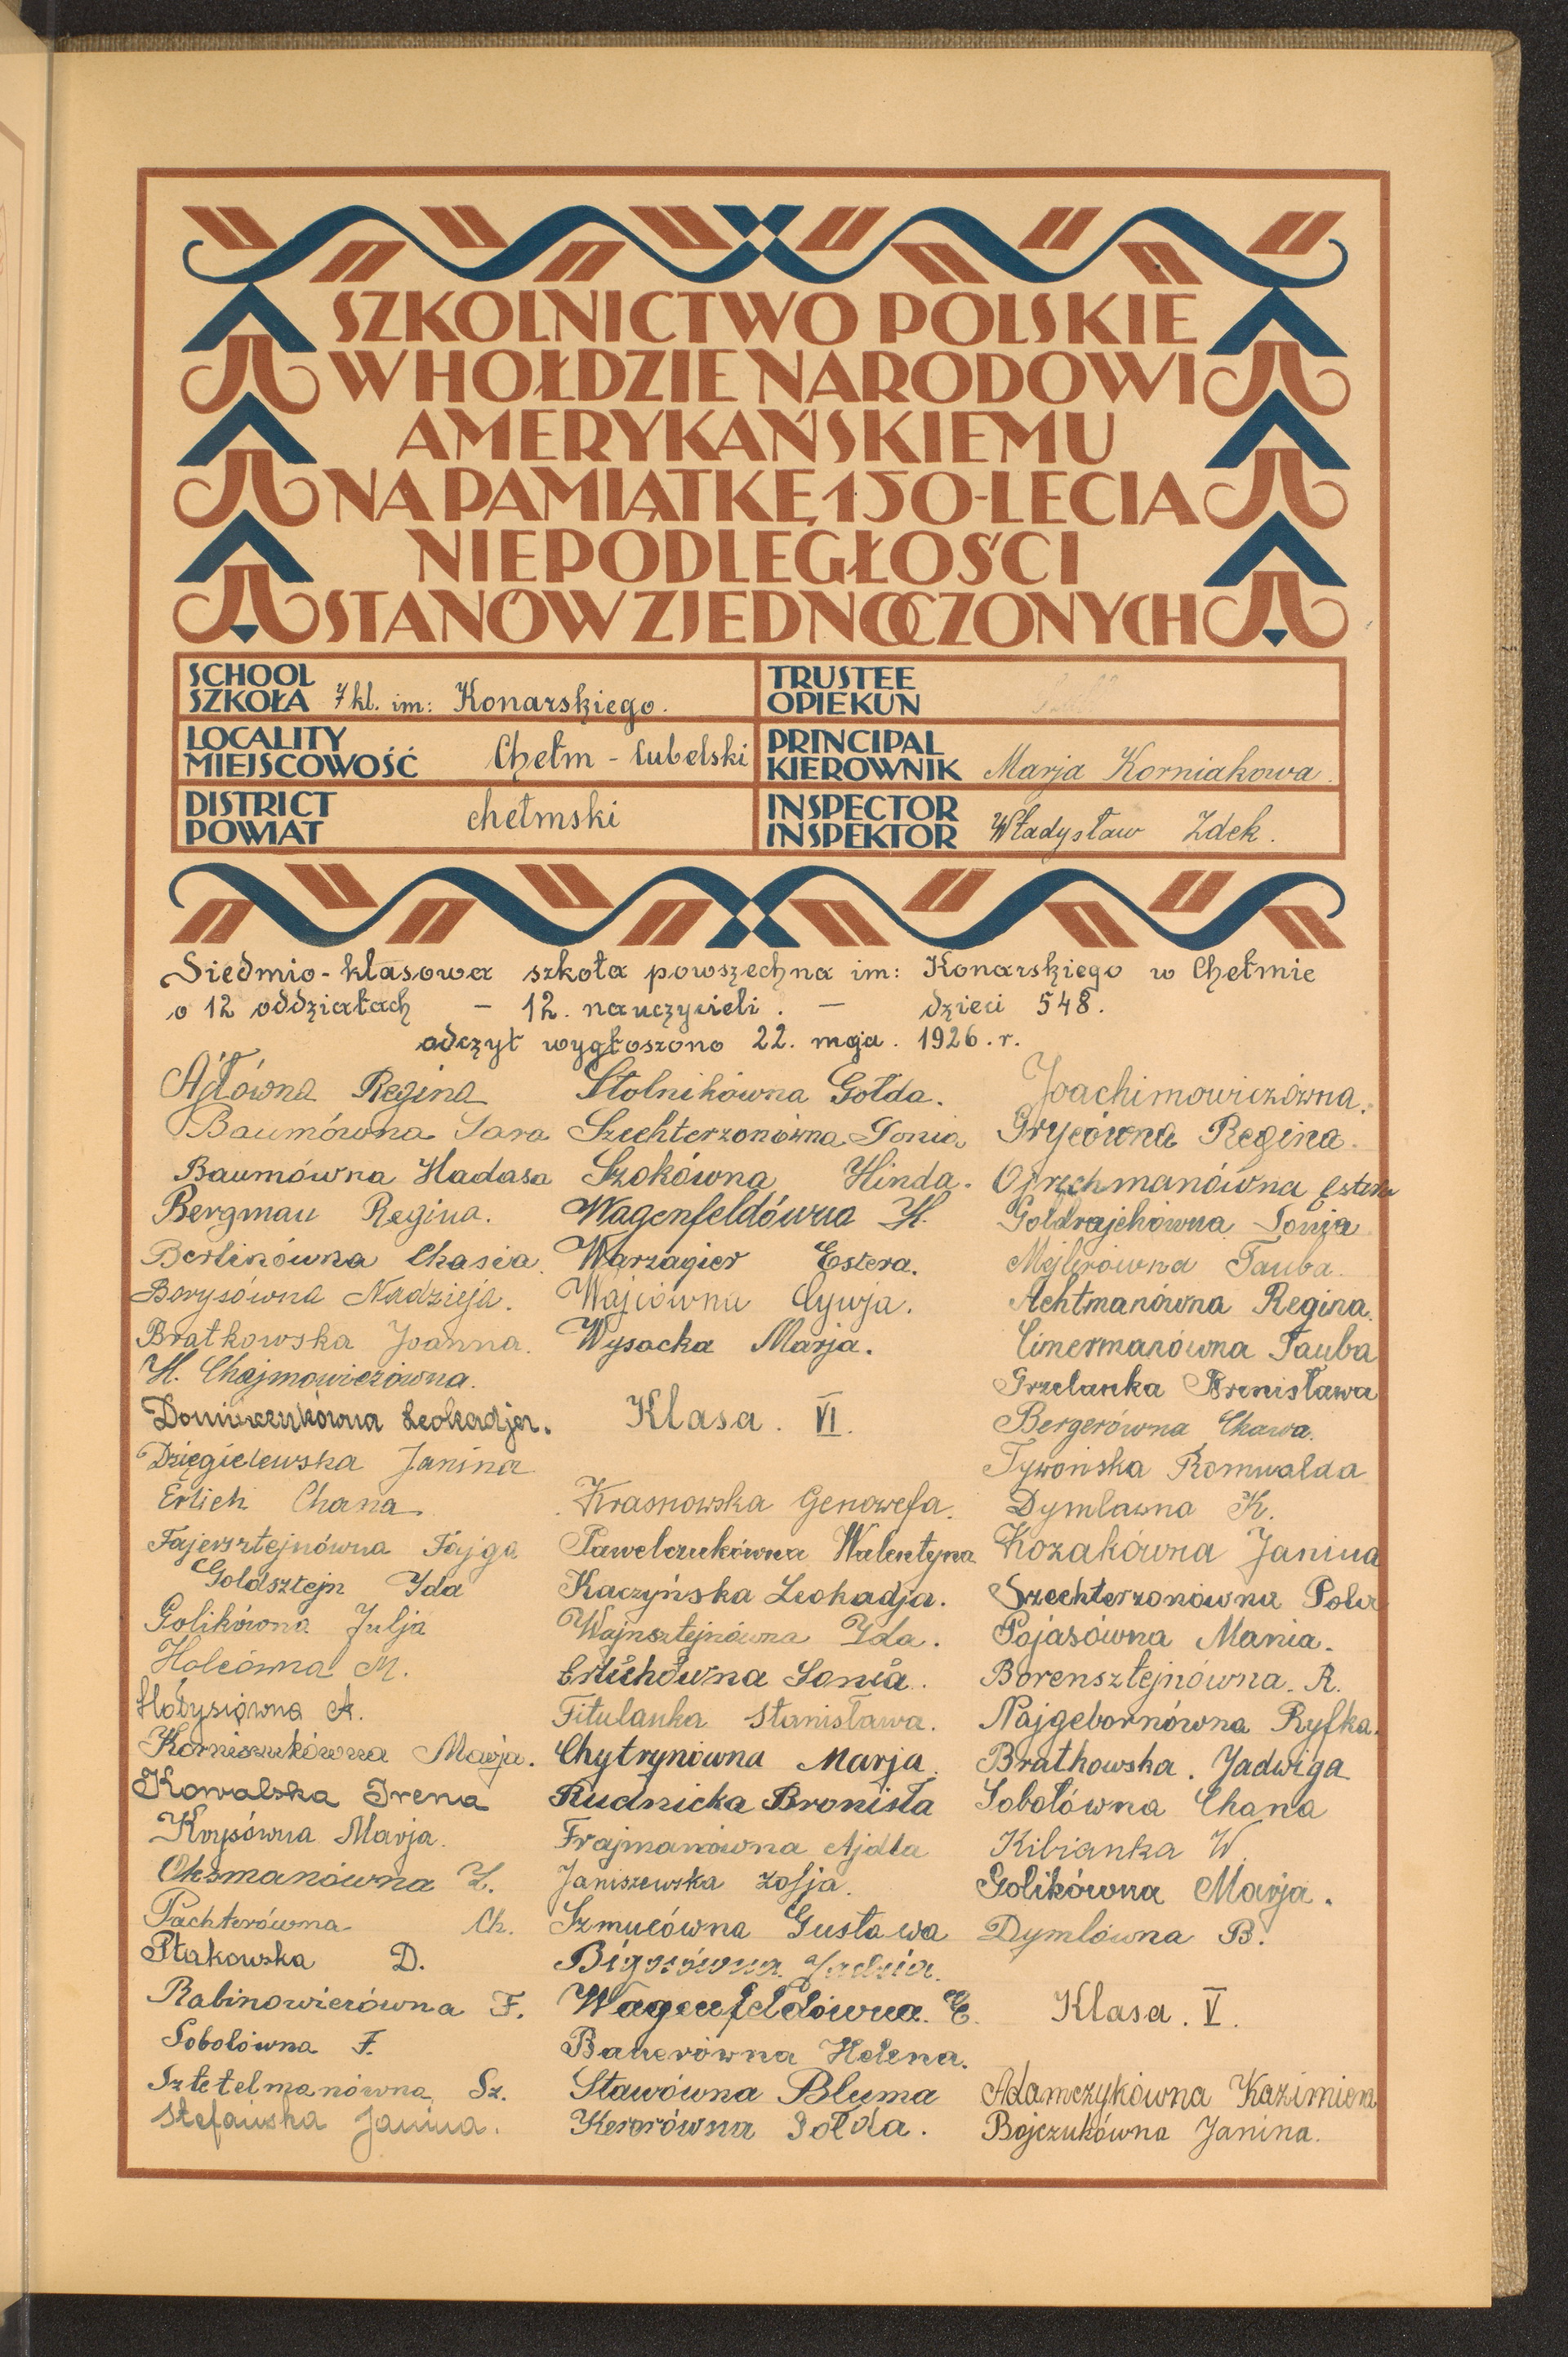 SZKOLNICTWO POLSKIE
W HOŁDZIE NARODOWI
AMERYKAŃSKIEMU
NA PAMIĄTKĘ 150-LECIA
NIEPODLEGŁOŚCI
STANÓW ZJEDNOCZONYCH
SCHOOL
SZKOŁA 7 kl. im: Konarskiego.
TRUSTEE
OPIEKUN
LOCALITY
MIEJSCOWOŚĆ Chełm - Lubelski
PRINCIPAL
KIEROWNIK Marja Korniakowa.
DISTRICT
POWIAT chełmski
INSPECTOR
INSPEKTOR Władysław Zdek.
Siedmio-klasowa szkoła powszechna im: Konarskiego w Chełmie
o 12 oddziałach - 12. nauczycieli. - dzieci 548.
odczyt wygłoszono 22. maja. 1926. r.
Ajłówna Regina
Baumówna Sara
Baumówna Hadasa
Bergman Regina.
Berlinówna Chasia.
Borysówna Nadzieja.
Bratkowska Joanna.
H. Chajmowiczówna.
Leokadja.
Dzięgielewska Janina
Erlich Chana
Fajersztejnówna Fajga
Goldsztejn Ida
Golikówna Julja
Holcówna M.
Hołysiówna A.
Korniszukówna Marja.
Kowalska Irena
Krysówna Marja.
Oksmanówna Z.
Pachterówna Ch.
Ptakowska D.
Rabinowiczówna F.
Sobolówna F.
Sztetelmanówna Sz.
Stefańska Janina.
Stolnikówna Gołda.
Szechterzonówna Tonia
Szokówna Hinda.
Wagenfeldówna H.
Warzagier Estera.
Wajcówna Cywja.
Wysocka Marja.
Klasa. VI.
Krasnowska Genowefa.
Pawelczukówna Walentyna
Kaczyńska Leokadja.
Wajnsztejnówna Ida.
Erlichówna Sonia.
Titulanka Stanisława.
Chytrynówna Marja.
Rudnicka Bronisła
Frajmanówna Ajdla
Janiszewska Zofja.
Szmulówna Gustawa
Jadzia.
Wagenfeldówna. E.
Bauerówna Helena.
Stawówna Bluma
Kernerówna Gołda.
Joachimowiczówna.
Grycówna Regina.
Ojrzchmanówna Estera
Goldrajchówna Tonja
Mejlerówna Tauba.
Achtmanówna Regina.
Cimermanówna Tauba
Grzelanka Bronisława
Bergerówna Chawa.
Tywońska Romualda
Dymlówna K.
Kozakówna Janina
Szechterzonówna Pola
Pojasówna Mania.
Borensztejnówna. R.
Najgebornówna Ryfka.
Bratkowska. Jadwiga
Sobolówna Chana
Kibianka W.
Golikówna Marja.
Dymlówna B.
Klasa. V.
Adamczykówna Kazimiera
Bojczukówna Janina.